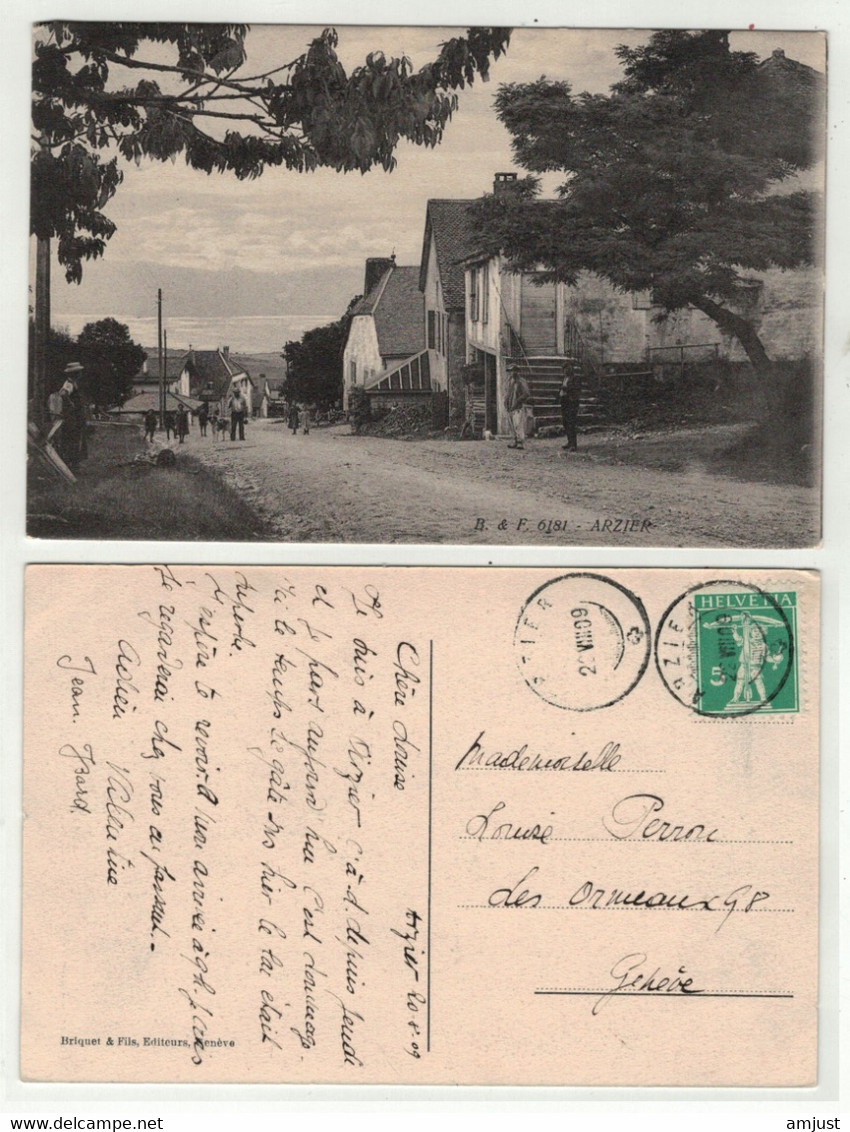 B. & F. 6181 - ARZIER
HELVETIA
5
ARZIER
20 VIII 09
ARZIER
20 VIII 09
Mademoiselle
Louise Perron
Les Ormeaux 98
Genève
Arzier 20-8-09
Chère Louise
Je suis à Arzier c'à d. depuis jeudi
et je pars aujourd'hui C'est dommage
le temps se gâte hier le lac était
superbe.
J'espère te revoir à mon arrivée à
Je regarderai chez vous en passant.-
Adieu Valentine
Jean.
Briquet & Fils, Editeurs, Genève
amjust